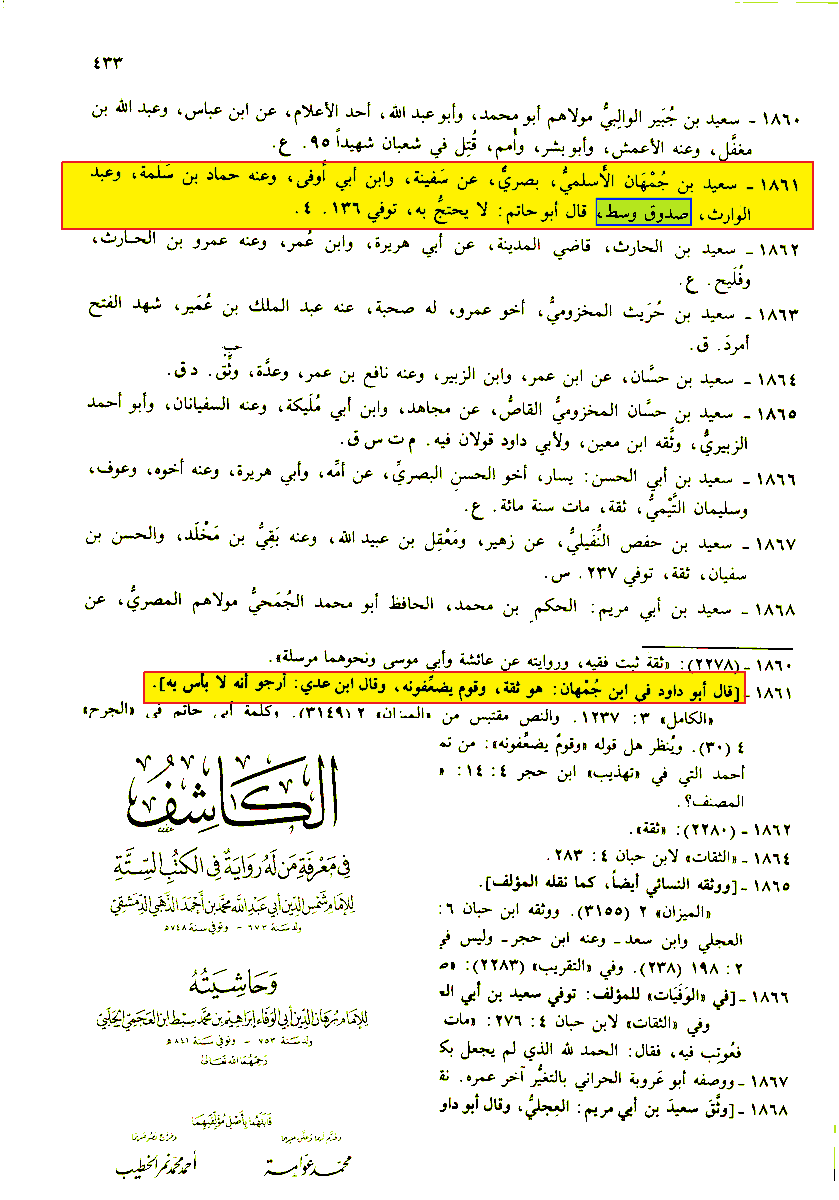 ٤٣٣
١٨٦٠ - سعيد بن جُبَير الوالبيُّ مولاهم أبو محمد، وأبو عبد الله، أحد الأعلام، عن ابن عباس، وعبد الله بن
مغفَّل، وعنه الأعمش، وأبو بشر، وأمم، قُتِل في شعبان شهيداً ٩٥. ع.
١٨٦١ - سعيد بن جُمْهَان الأسلميُّ، بصريٌّ، عن سَفينة، وابن أبي أوفى، وعنه حماد بن سَلَمة، وعبد
الوارث، صدوق وسط، قال أبو حاتم: لا يحتجُّ به، توفي ١٣٦. ٤.
١٨٦٢ - سعيد بن الحارث، قاضي المدينة، عن أبي هريرة، وابن عُمر، وعنه عمرو بن الحارث،
وفُلَيح. ع.
١٨٦٣ - سعيد بن حُرَيث المخزوميُّ، أخو عمرو، له صحبة، عنه عبد الملك بن عُمَير، شهد الفتح
أمردَ. ق.
١٨٦٤ - سعيد بن حسَّان، عن ابن عمر، وابن الزبير، وعنه نافع بن عمر، وعدَّة، وثِّق. د ق.
حب
١٨٦٥ - سعيد بن حسَّان المخزوميُّ القاصُّ، عن مجاهد، وابن أبي مُلَيكة، وعنه السفيانان، وأبو أحمد
الزبيريُّ، وثَّقه ابن معين، ولأبي داود قولان فيه. م ت س ق.
١٨٦٦ - سعيد بن أبي الحسن: يسار، أخو الحسن البصريِّ، عن أمِّه، وأبي هريرة، وعنه أخوه، وعوف،
وسليمان التَّيْميُّ، ثقة، مات سنة مائة. ع.
١٨٦٧ - سعيد بن حفص النُّفَيليُّ، عن زهير، ومَعْقِل بن عبيد الله، وعنه بَقِيُّ بن مَخْلَد، والحسن بن
سفيان، ثقة، توفي ٢٣٧. س.
١٨٦٨ - سعيد بن أبي مريم: الحكم بن محمد، الحافظ أبو محمد الجُمَحيُّ مولاهم المصريُّ، عن
١٨٦٠ - (٢٢٧٨): «ثقة ثبت فقيه، وروايته عن عائشة وأبي موسى ونحوهما مرسلة».
١٨٦١ - [قال أبو داود في ابن جُمْهان: هو ثقة، وقوم يضعِّفونه، وقال ابن عدي: أرجو أنه لا بأس به].
«الكامل» ٣: ١٢٣٧. والنص مقتبس من «الميزان» ٢ (٣١٤٩). وكلمة أبي حاتم في «الجرح»
٤ (٣٠). ويُنظر هل قوله «وقومٌ يضعِّفونه»: من تم
أحمد التي في «تهذيب» ابن حجر ٤: ١٤: «
المصنف؟.
١٨٦٢ - (٢٢٨٠): «ثقة».
١٨٦٤ - «الثقات» لابن حبان ٤: ٢٨٣.
١٨٦٥ - [ووثقه النسائي أيضاً، كما نقله المؤلف].
«الميزان» ٢ (٣١٥٥). ووثقه ابن حبان ٦:
العجلي وابن سعد - وعنه ابن حجر - وليس في
٢: ١٩٨ (٢٣٨). وفي «التقريب» (٢٢٨٣): «ص
١٨٦٦ - [في «الوَفَيَات» للمؤلف: توفي سعيد بن أبي ال
وفي «الثقات» لابن حبان ٤: ٢٧٦: «مات
فعُوتِب فيه، فقال: الحمد لله الذي لم يجعل بك
١٨٦٧ - ووصفه أبو عَروبة الحراني بالتغيُّر آخر عمره. نق
١٨٦٨ - [وثَّق سعيدَ بن أبي مريم: العِجليُّ، وقال أبو داو
الكاشف
في معرفة من له رواية في الكتب الستة
للإمام شمس الدين أبي عبد الله محمد بن أحمد الذهبي الدمشقي
ولد سنة ٦٧٣ - وتوفي سنة ٧٤٨ هـ
وحاشيته
للإمام برهان الدين أبي الوفاء إبراهيم بن محمد سبط ابن العجمي الحلبي
ولد سنة ٧٥٣ - وتوفي سنة ٨٤١ هـ
رحمهما الله تعالى
قابلهما بأصل مؤلفيهما
محمد عوامة
أحمد محمد نمر الخطيب